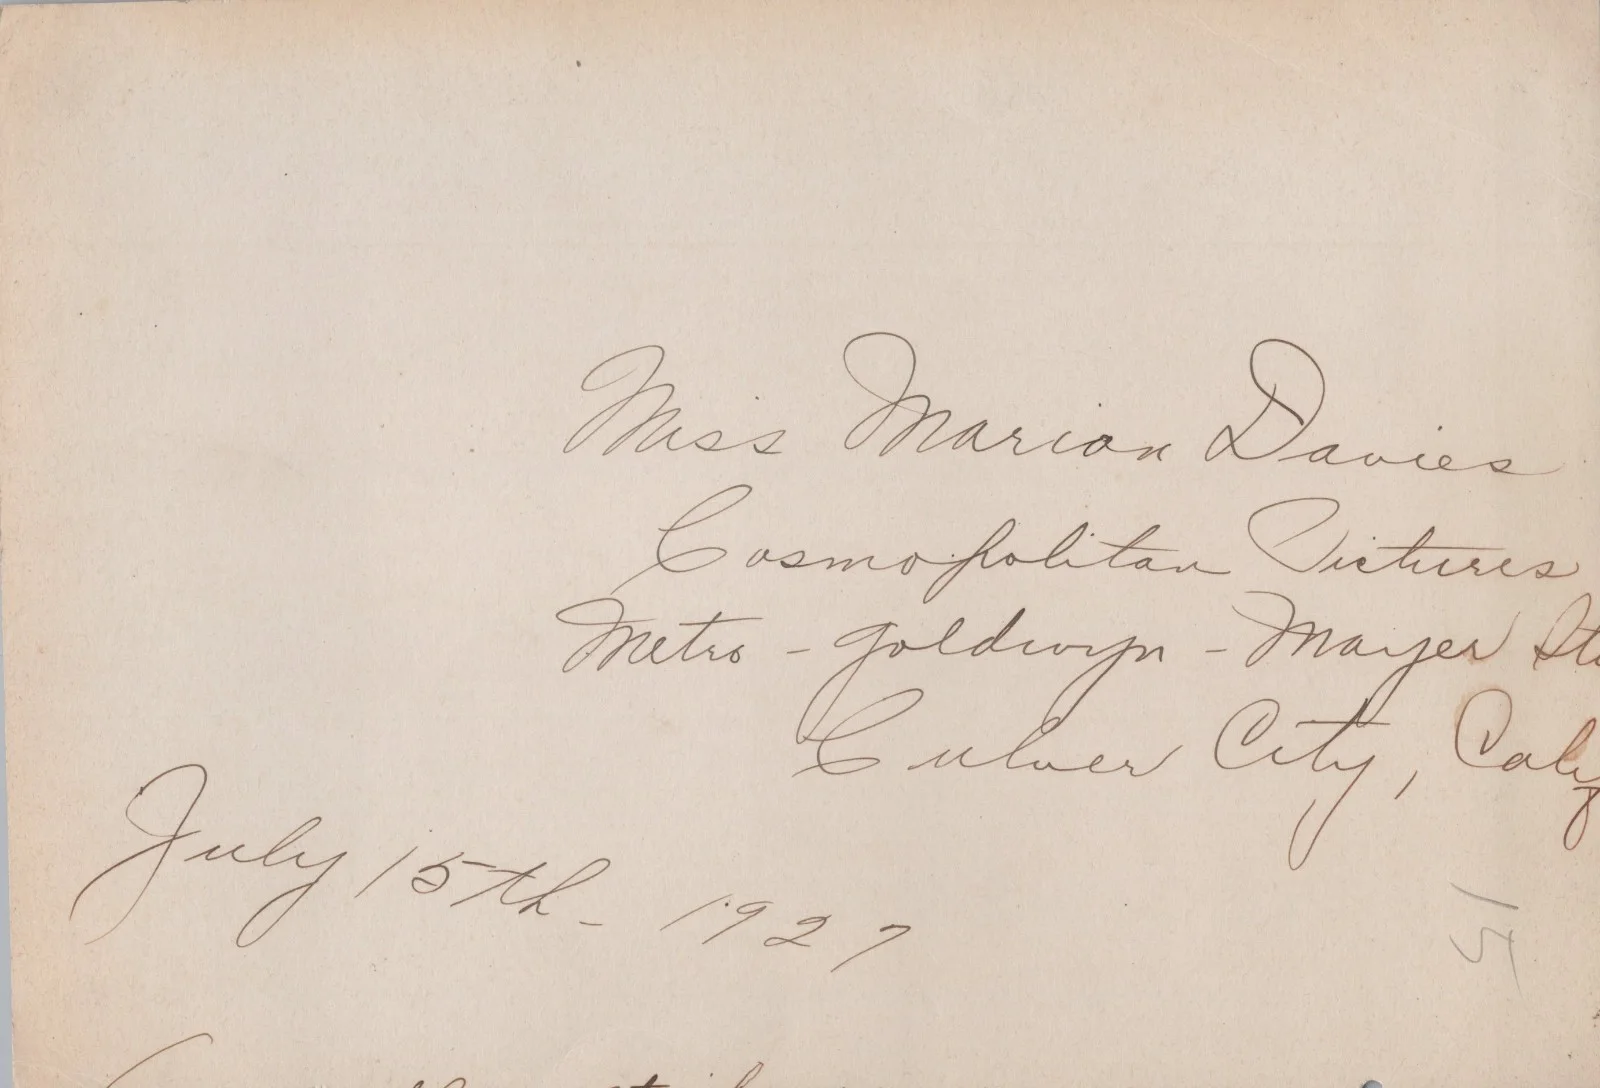 Miss Marion Davies
Cosmopolitan Pictures
Metro - Goldwyn - Mayer
Culver City, Calif
July 15th - 1927